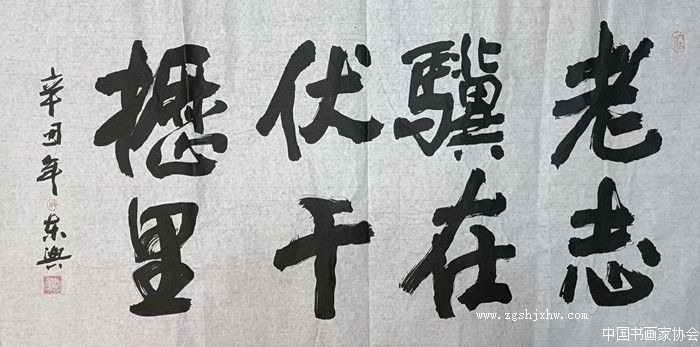 老驥伏櫪
志在千里
辛丑年 東興
www.zgshjxhw.com
中国书画家协会